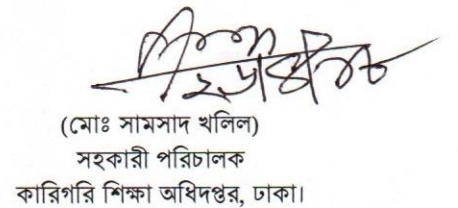 (মোঃ সামসাদ খলিল)
সহকারী পরিচালক
কারিগরি শিক্ষা অধিদপ্তর, ঢাকা।